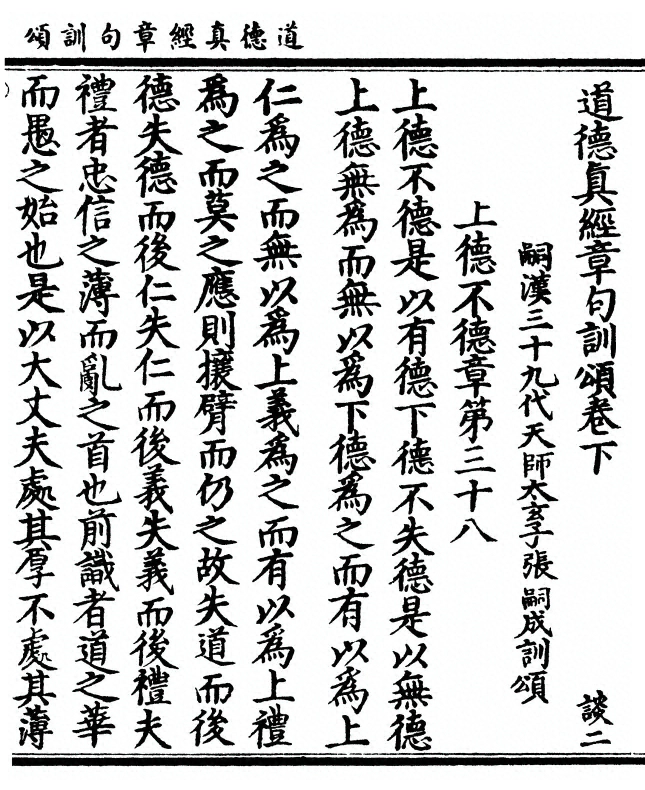 道德真經章句訓頌
道德真經章句訓頌卷下　談二
嗣漢三十九代天師太玄子張嗣成訓頌
上德不德章第三十八
上德不德是以有德下德不失德是以無德
上德無為而無以為下德為之而有以為上
仁為之而無以為上義為之而有以為上禮
為之而莫之應則攘臂而仍之故失道而後
德失德而後仁失仁而後義失義而後禮夫
禮者忠信之薄而亂之首也前識者道之華
而愚之始也是以大丈夫處其厚不處其薄